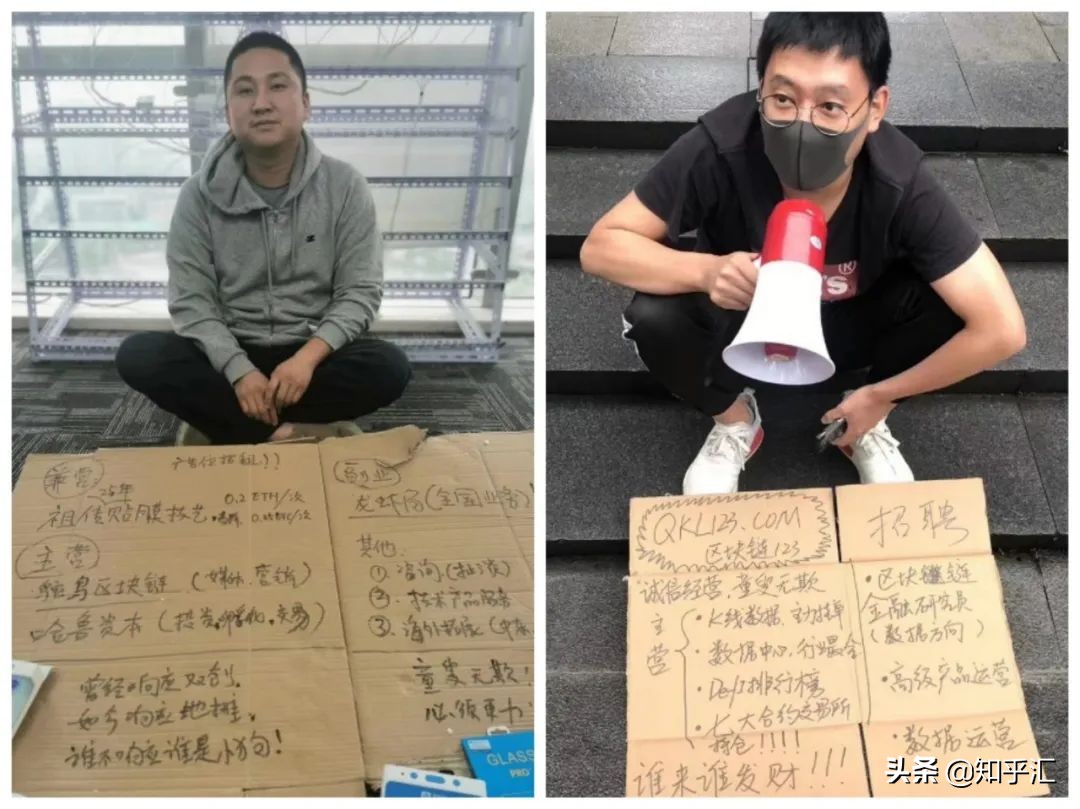 广告位招租!!
兼营
25年
祖传贴膜技艺
0.2 ETH/次
主营
鸵鸟区块链(媒体.营销)
哈鲁资本(投资.孵化.交易)
曾经响应双创,
如今响应地摊,
谁不响应谁是小狗!
副业
龙虾局(全国业务)
其他.
① 咨询(扯淡)
② 技术产品服务
③ 海外拓展
童叟无欺!
GLASS
PRO
QKL123.COM
区块链123
诚信经营,童叟无欺
主营
• K线数据、主力挂单
• 数据中心,行业最全
• Defi排行榜
• 七大合约交易所
持仓!!!!
谁来谁发财!!!
招聘
• 区块链
金融研究员
(数据方向)
• 高级产品运营
• 数据运营
头条 @知乎汇